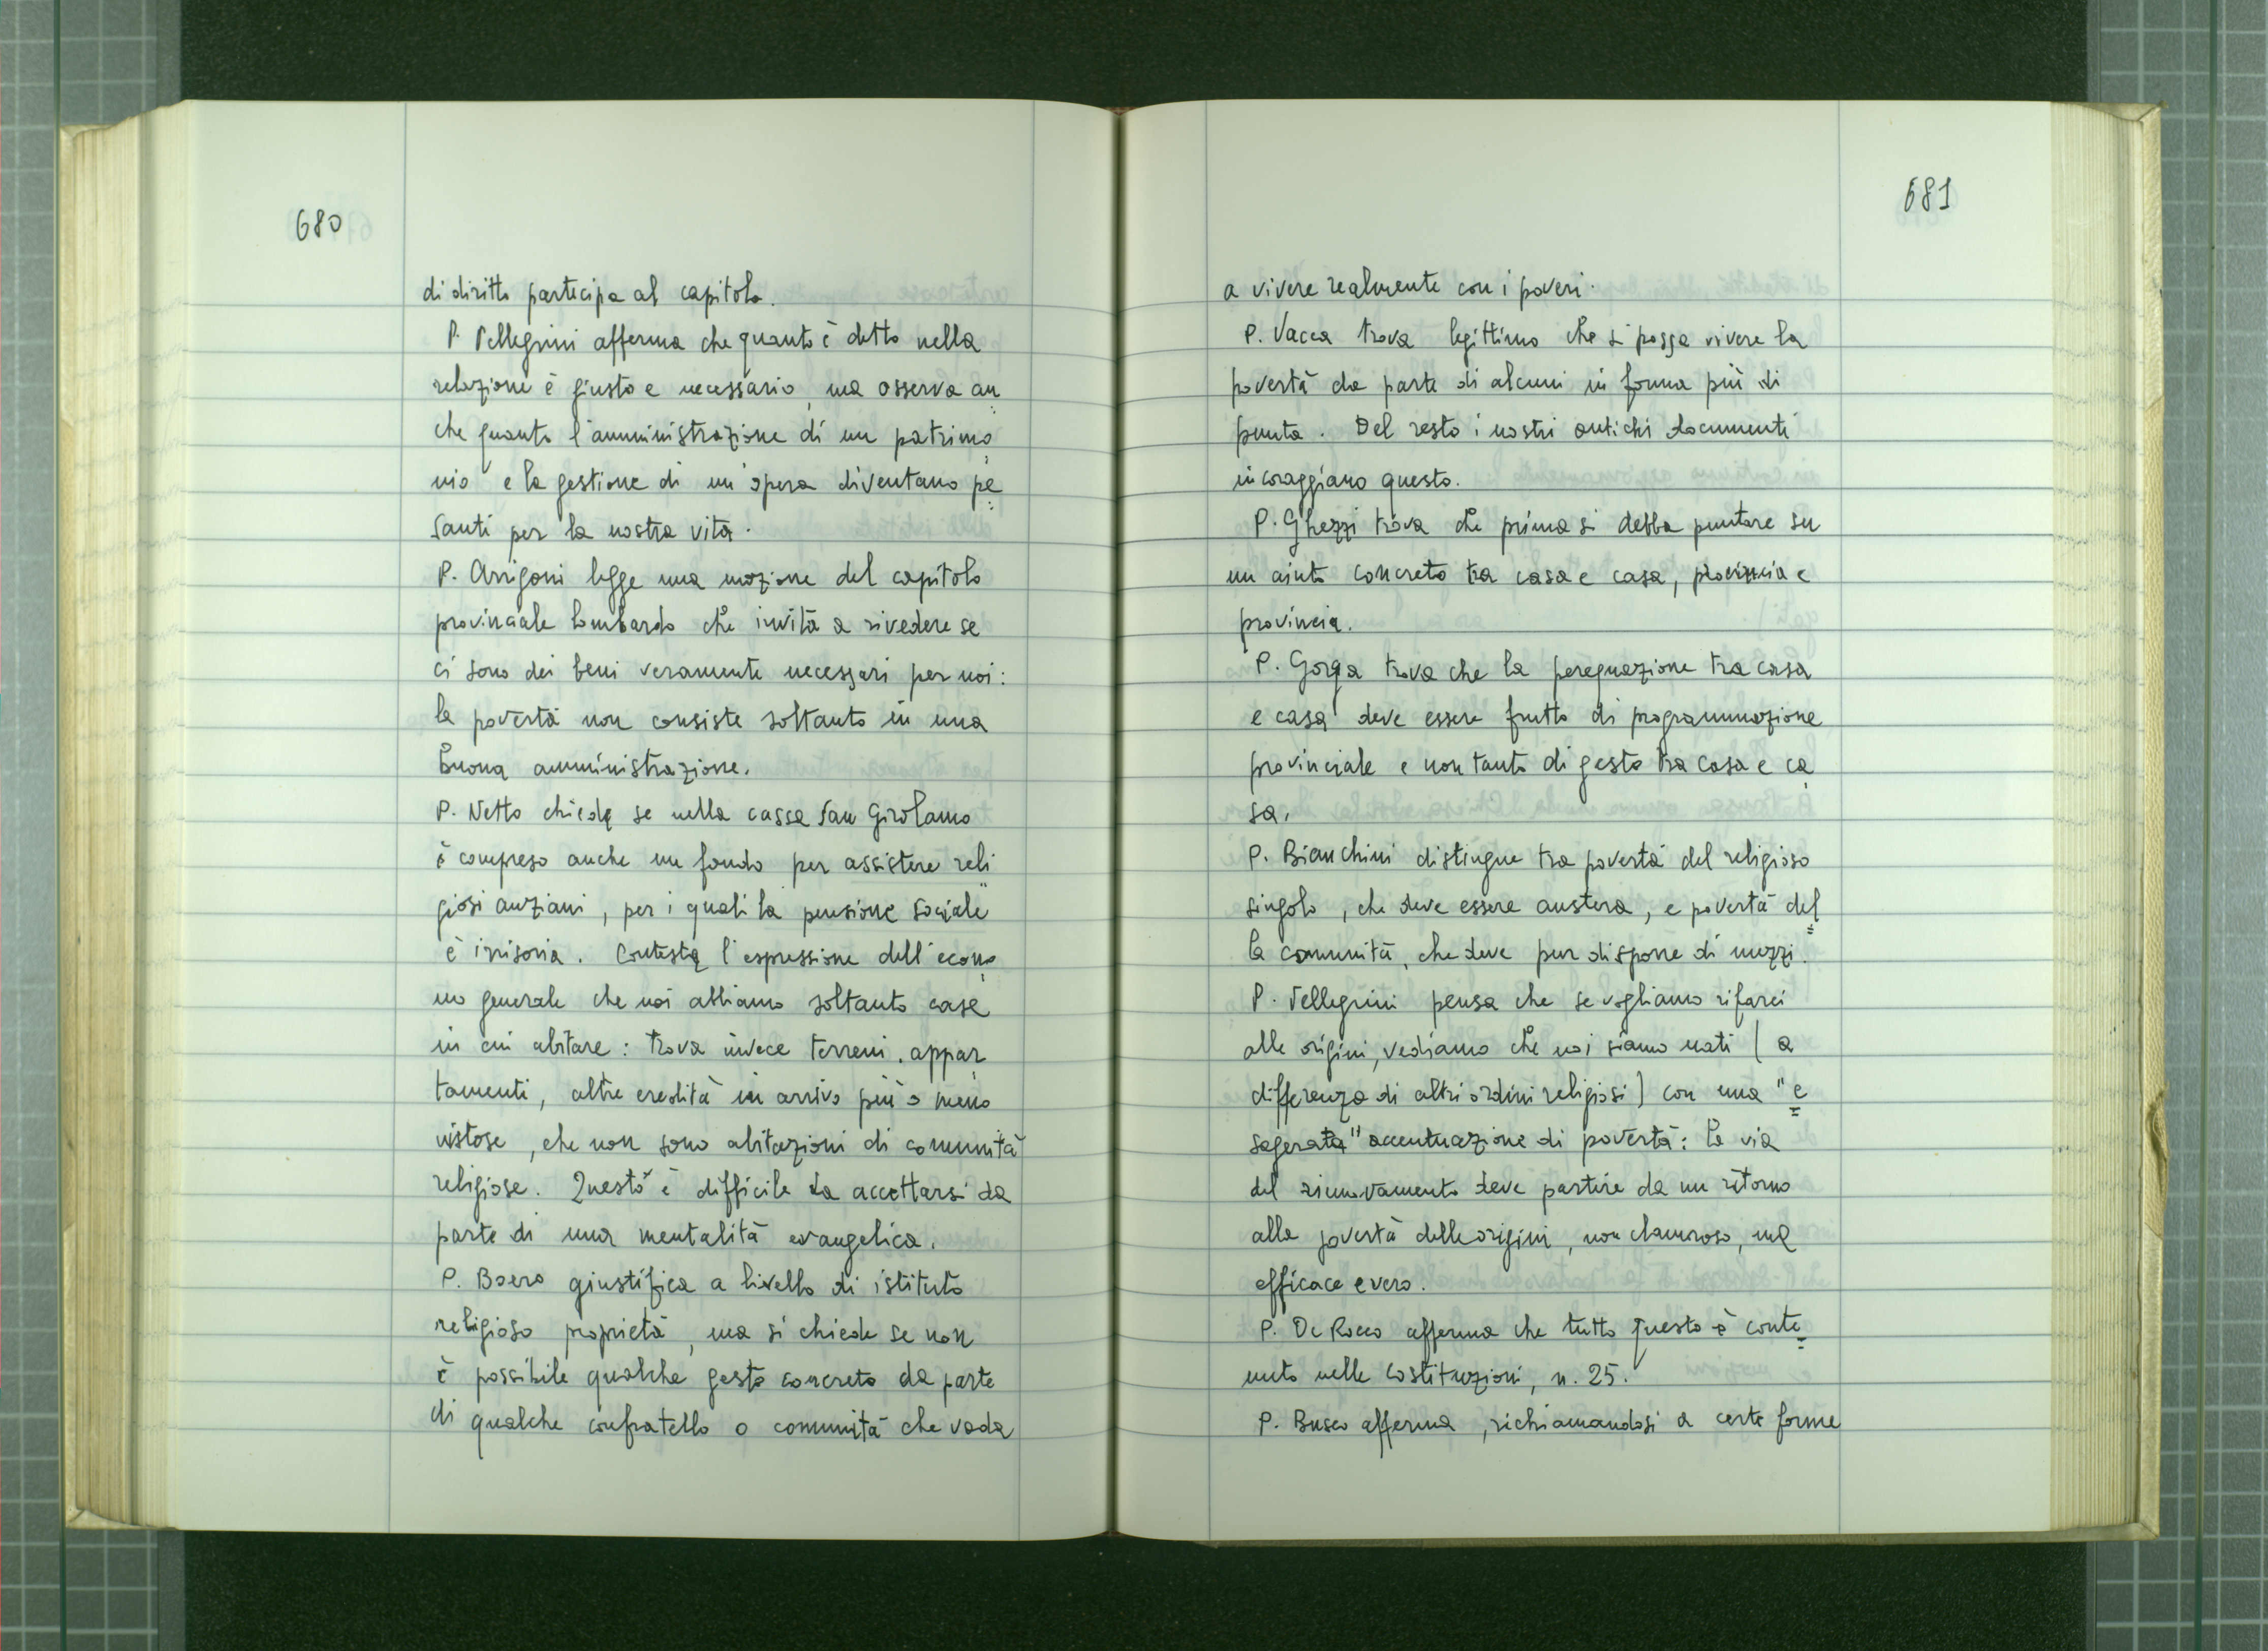 680
di diritto partecipa al capitolo.
P. Pellegrini afferma che quanto è detto nella
relazione è giusto e necessario, ma osserva an
che quanto l'amministrazione di un patrimo
nio e la gestione di un'opera diventano pe
santi per la nostra vita.
P. Arrigoni legge una mozione del capitolo
provinciale lombardo che invita a rivedere se
ci sono dei beni veramente necessari per noi:
la povertà non consiste soltanto in una
buona amministrazione.
P. Netto chiede se nella cassa San Girolamo
è compreso anche un fondo per assistere reli
giosi anziani, per i quali la pensione sociale
è irrisoria. Contesta l'espressione dell'econo
mo generale che noi abbiamo soltanto case
in cui abitare: trova invece terreni, appar
tamenti, altre eredità in arrivo più o meno
vistose, che non sono abitazioni di comunità
religiose. Questo è difficile da accettarsi da
parte di una mentalità evangelica.
P. Boero giustifica a livello di istituto
religioso proprietà, ma si chiede se non
è possibile qualche gesto concreto da parte
di qualche confratello o comunità che vada
681
a vivere realmente con i poveri.
P. Vacca trova legittimo che si possa vivere la
povertà da parte di alcuni in forma più di
punta. Del resto i nostri antichi documenti
incoraggiano questo.
P. Ghezzi trova che prima si debba puntare su
un aiuto concreto tra casa e casa, provincia e
provincia.
P. Gorga trova che la perequazione tra casa
e casa deve essere frutto di programmazione
provinciale e non tanto di gesto tra casa e ca
sa.
P. Bianchini distingue tra povertà del religioso
singolo, che deve essere austera, e povertà del
la comunità, che deve pur disporre di mezzi.
P. Pellegrini pensa che se vogliamo rifarci
alle origini, vediamo che noi siamo nati (a
differenza di altri ordini religiosi) con una "e
sagerata" accentuazione di povertà: la via
del rinnovamento deve partire da un ritorno
alla povertà delle origini, non clamoroso, ma
efficace e vero.
P. De Rocco afferma che tutto questo è conte
nuto nelle Costituzioni, n. 25.
P. Busco afferma, richiamandosi a certe forme